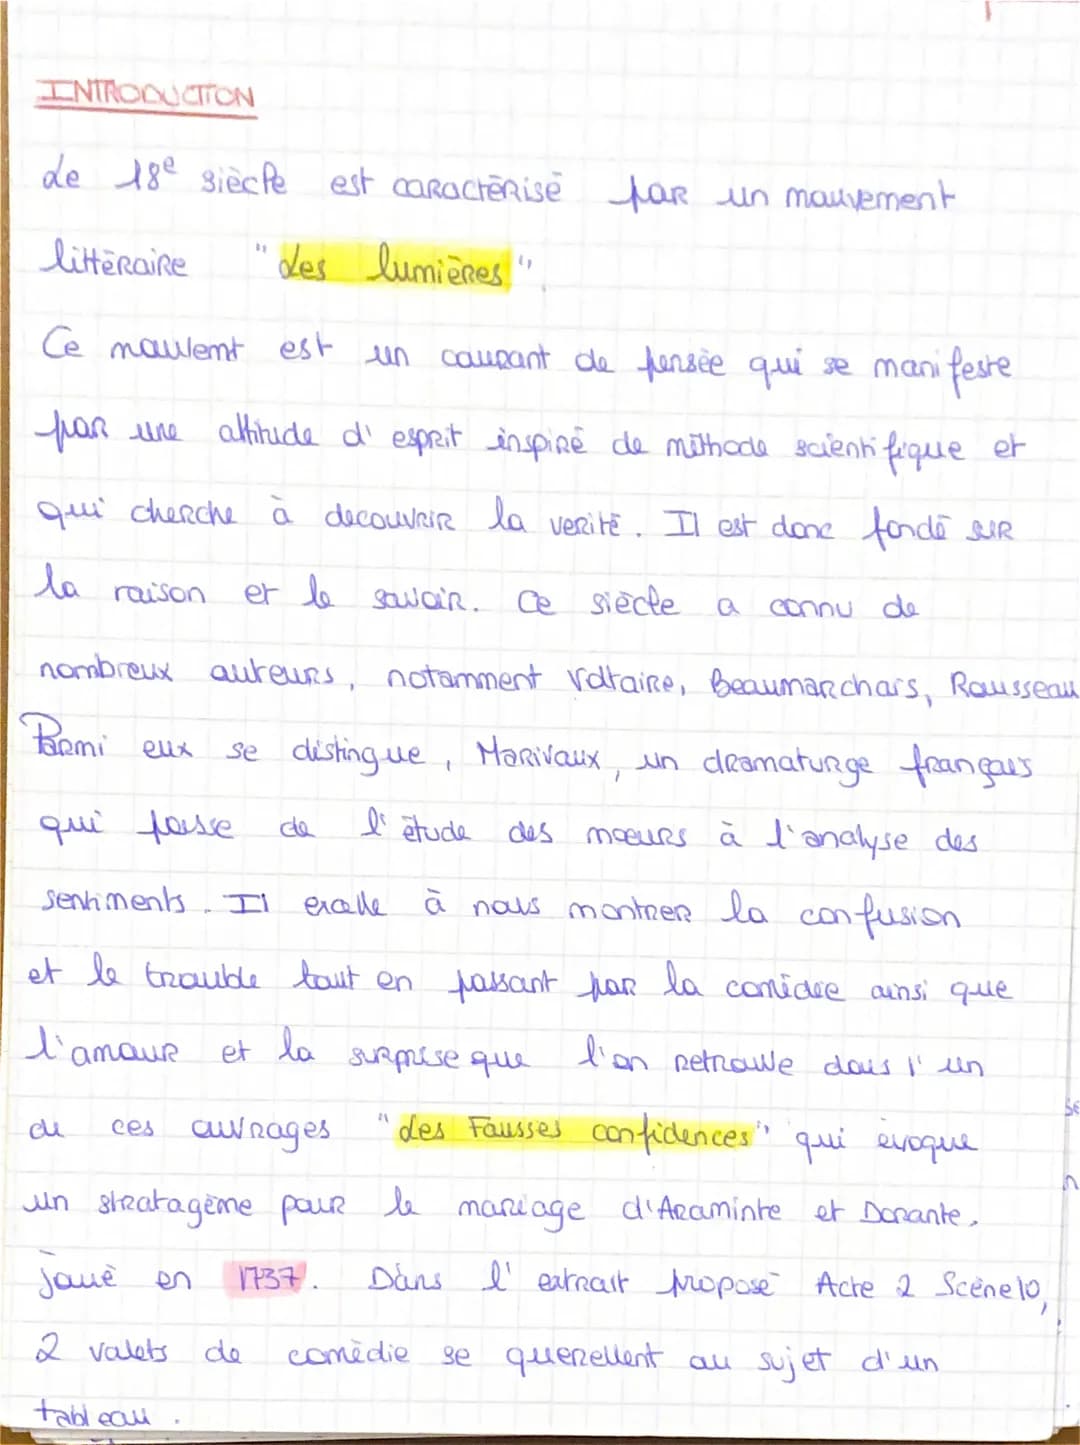 INTRODUCTION
Le 18e siècle est caractérisé par un mouvement
littéraire "Les lumières".
Ce mouvemt est un courant de pensée qui se manifeste
par une attitude d'esprit inspiré de méthode scientifique et
qui cherche à decouvrir la verité. Il est donc fondé sur
la raison et le savoir. Ce siècle a connu de
nombreux auteurs, notamment Voltaire, Beaumarchais, Rousseau
Parmi eux se distingue, Marivaux, un dramaturge français
qui passe de l'étude des mœurs à l'analyse des
sentiments. Il excelle à nous montrer la confusion
et le trouble tout en passant par la comédie ainsi que
l'amour et la surprise que l'on retrouve dans l'un
de ces ouvrages "Les Fausses confidences" qui évoque
un stratagème pour le mariage d'Araminte et Dorante,
joué en 1737. Dans l'extrait proposé Acte 2 Scène 10,
2 valets de comédie se querellent au sujet d'un
tableau.